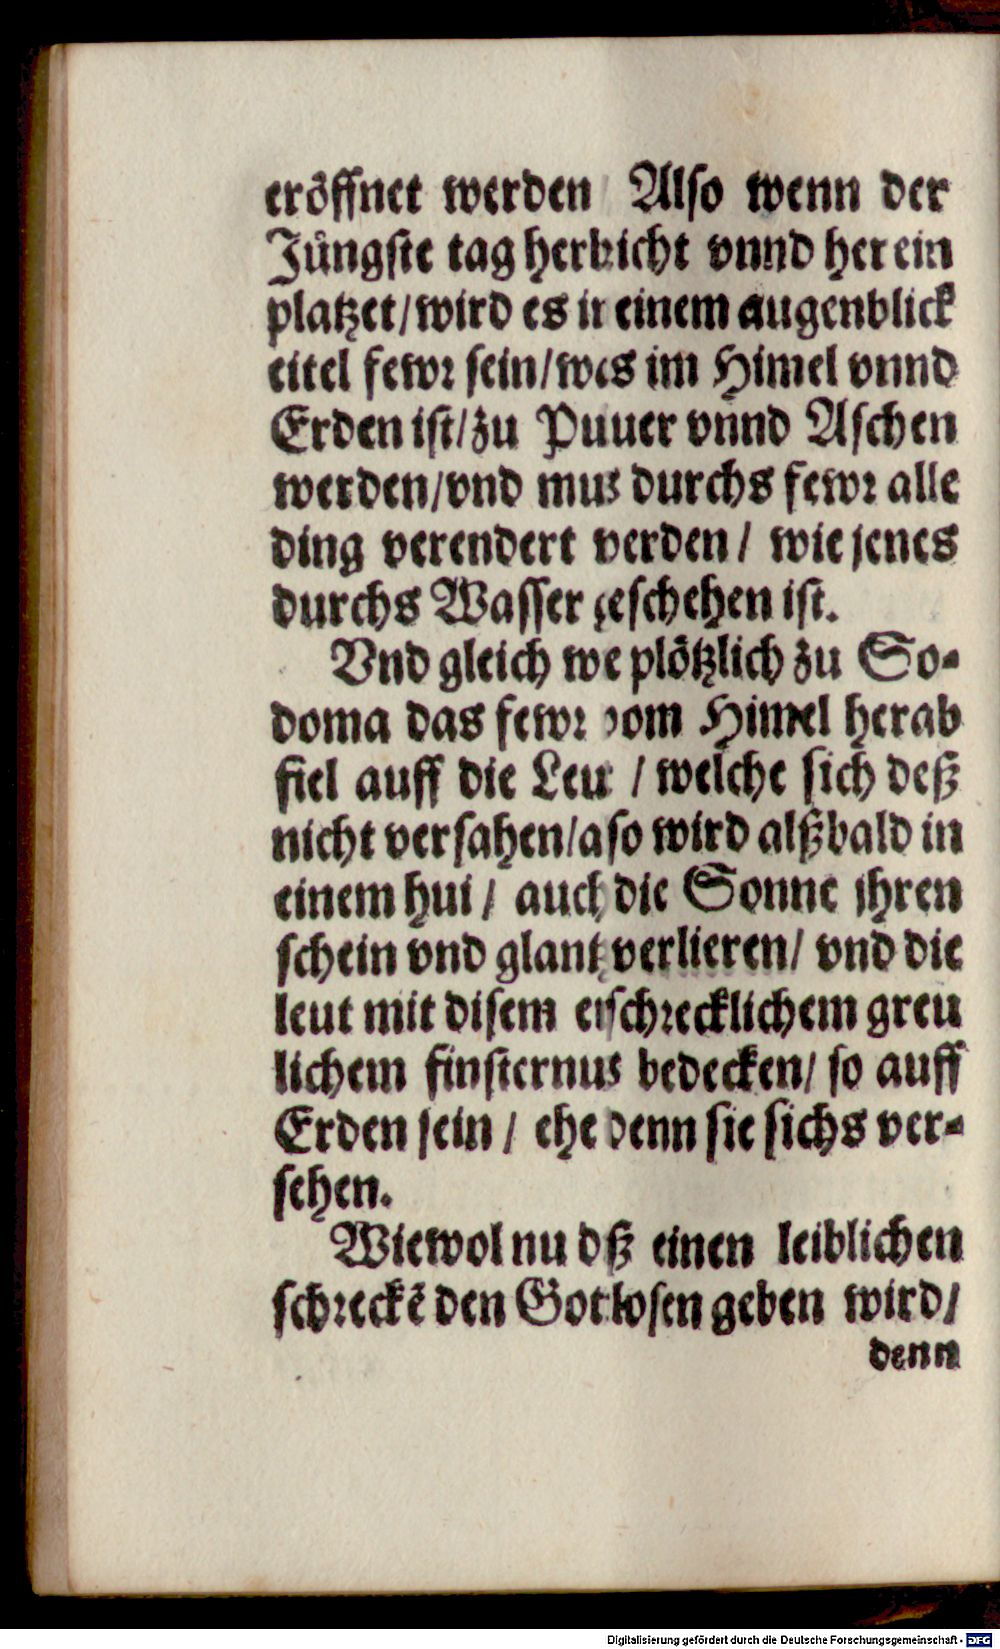 eröffnet werden / Also wenn der
Jüngste tag herbricht vnnd herein
platzet/wird es in einem augenblick
eitel fewr sein/was im Himel vnnd
Erden ist/zu Puluer vnnd Aschen
werden/vnd mus durchs fewr alle
ding verendert werden/ wie jenes
durchs Wasser geschehen ist.
Vnd gleich wie plötzlich zu So-
doma das fewr vom Himel herab
fiel auff die Leut / welche sich deß
nicht versahen/also wird alßbald in
einem hui / auch die Sonne ihren
schein vnd glantz verlieren/ vnd die
leut mit disem erschrecklichem greu
lichem finsternus bedecken/ so auff
Erden sein / ehe denn sie sichs ver-
sehen.
Wiewol nu diß einen leiblichen
schreckē den Gotlosen geben wird/
denn
Digitalisierung gefördert durch die Deutsche Forschungsgemeinschaft - DFG